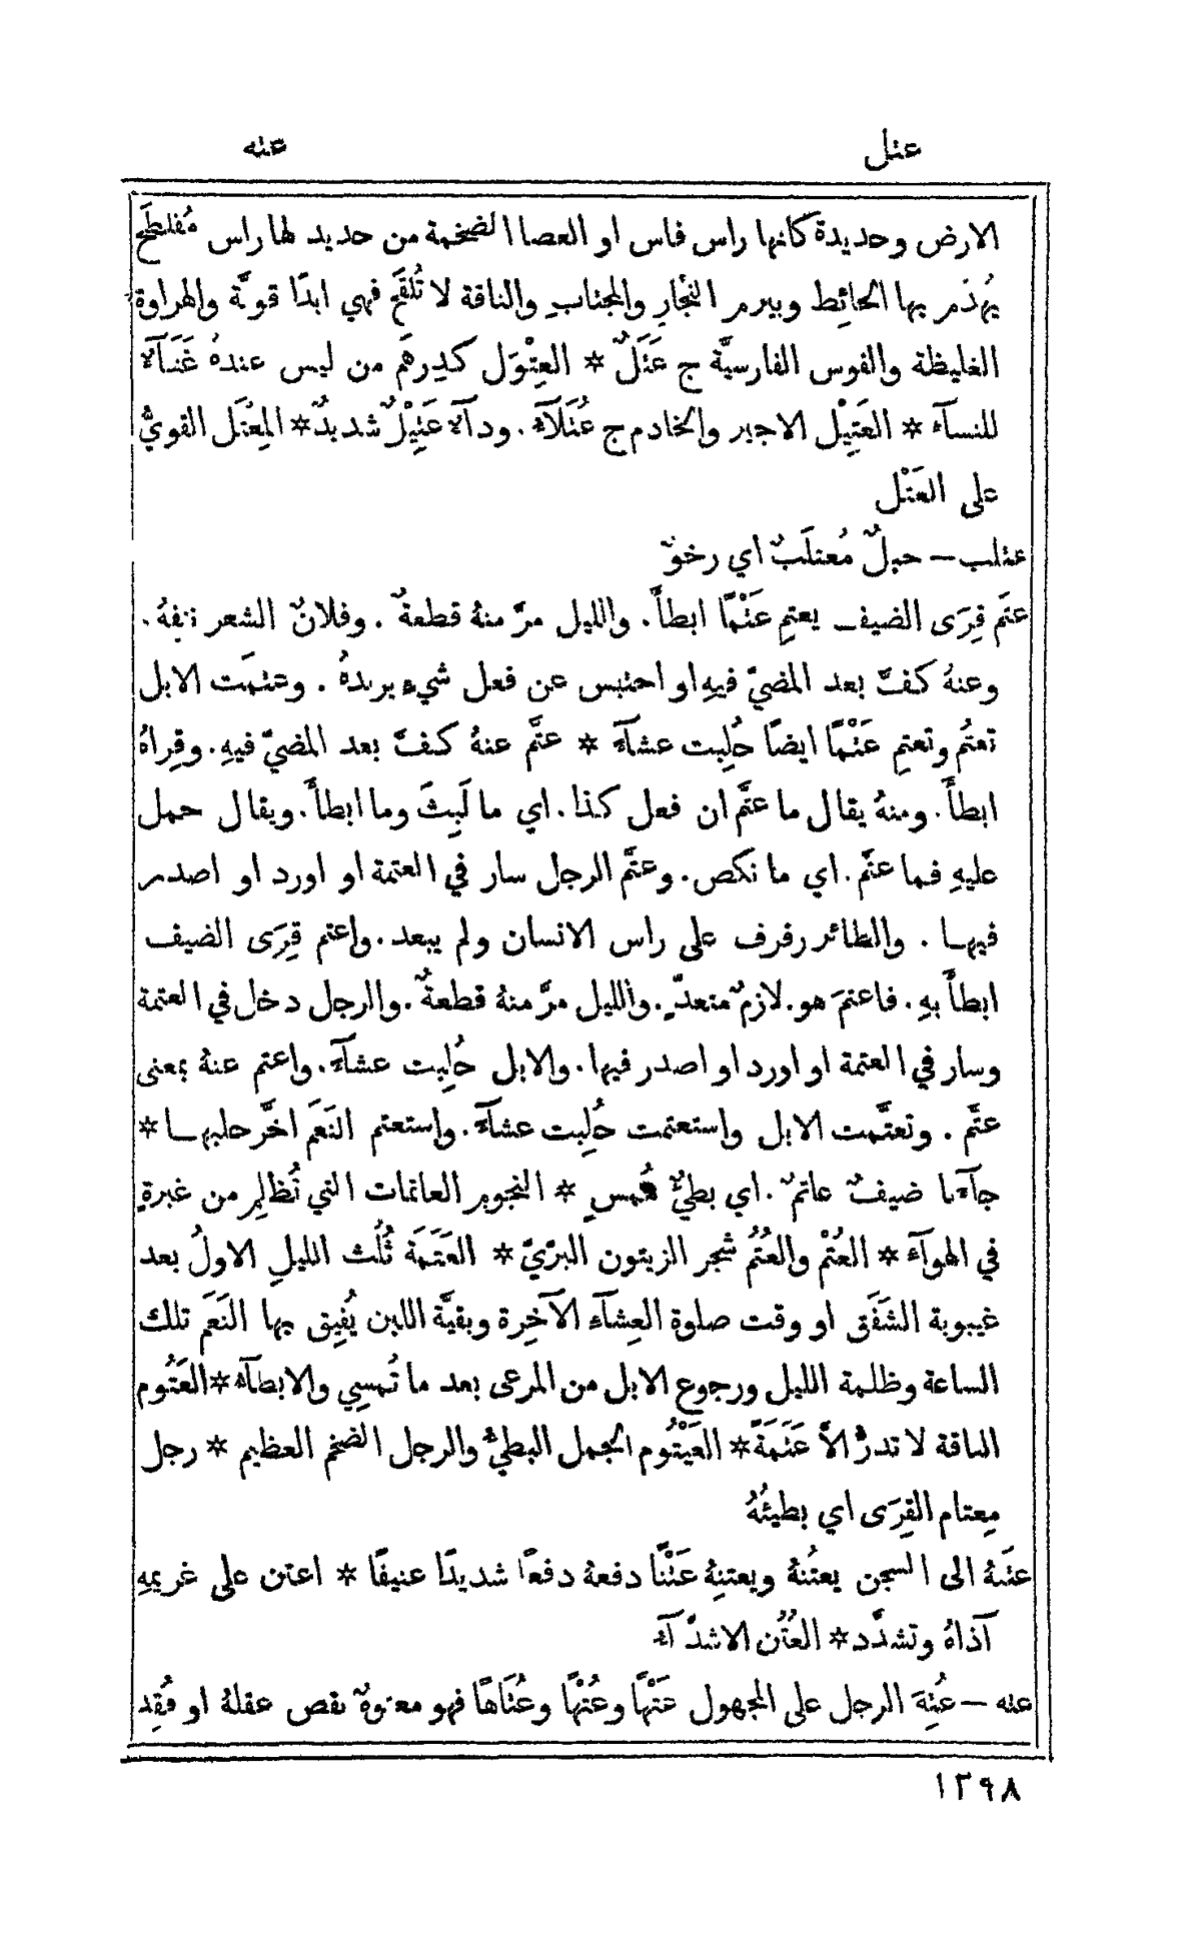 عتل
عته
الارض وحديدة كانها راس فاس او العصا الضخمة من حديد لها راس مُفلطَح
يُهدَم بها الحائِط وبيرم النجَّار والمجتاب والناقة لا تُلقَح فهي ابدًا قويَّة والهراوة
الغليظة والقوس الفارسيَّة ج عَتَلٌ * العِتْوَل كدِرهَم من ليس عندهُ غَنَآء
للنسآء * العَتِيْل الاجير والخادم ج عُتَلَآء. ودآء عَتِيْلٌ شديدٌ * المِعْتَل القويُّ
على العَتْل
عتلب — حبلٌ مُعتلَبٌ اي رخوٌ
عتَم قِرَى الضيف يعتِم عَتْمًا ابطأَ. والليل مرَّ منهُ قطعةٌ. وفلانٌ الشعر نتفهُ.
وعنهُ كفَّ بعد المضيّ فيهِ او احتبس عن فعل شيءٍ يريدهُ. وعتَمَت الابل
تعتُم وتعتِم عَتْمًا ايضًا حُلِبت عشآءً * عتَّم عنهُ كفَّ بعد المضيّ فيهِ. وقِراهُ
ابطأَ. ومنهُ يقال ما عتَّم ان فعل كذا. اي ما لَبِثَ وما ابطأَ. ويقال حمل
عليهِ فما عتَّم. اي ما نكص. وعتَّم الرجل سار في العتمة او اورد او اصدر
فيها. والطائر رفرف على راس الانسان ولم يبعد. واعتم قِرَى الضيف
ابطأَ بهِ. فاعتمَ هو. لازمٌ متعدٍّ. والليل مرَّ منهُ قطعةٌ. والرجل دخل في العتمة
وسار في العتمة او اورد او اصدر فيها. والابل حُلِبت عشآءً. واعتم عنهُ بمعنى
عتَّم. وتعتَّمت الابل واستعتمت حُلِبت عشآءً. واستعتم النَعَم اخَّر حلبها *
جآءنا ضيفٌ عاتمٌ. اي بطيءٌ مُمسٍ * النجوم العاتمات التي تُظلِم من غبرةٍ
في الهوآء * العُتْم والعُتُم شجر الزيتون البرّيّ * العَتَمَة ثُلُث الليل الاولُ بعد
غيبوبة الشَفَق او وقت صلوة العِشآء الآخِرة وبقيَّة اللبن يُفِيق بها النَعَم تلك
الساعة وظلمة الليل ورجوع الابل من المرعى بعد ما تُمسِي والابطآء * العَتُوم
الناقة لا تدرُّ الَّا عَتَمَةً * العَيْتُوم الجمل البطيءُ والرجل الضخم العظيم * رجل
مِعتام القِرَى اي بطيئُهُ
عتَنهُ الى السجن يعتُنهُ ويعتِنهُ عَتْنًا دفعهُ دفعًا شديدًا عنيفًا * اعتن على غريمهِ
آذاهُ وتشدَّد * العُتُن الاشدَّآء
عته — عُتِهَ الرجل على المجهول عَتْهًا وعُتْهًا وعُتَاهًا فهو معتوهٌ نقص عقلهُ او فُقِد
١٣٩٨